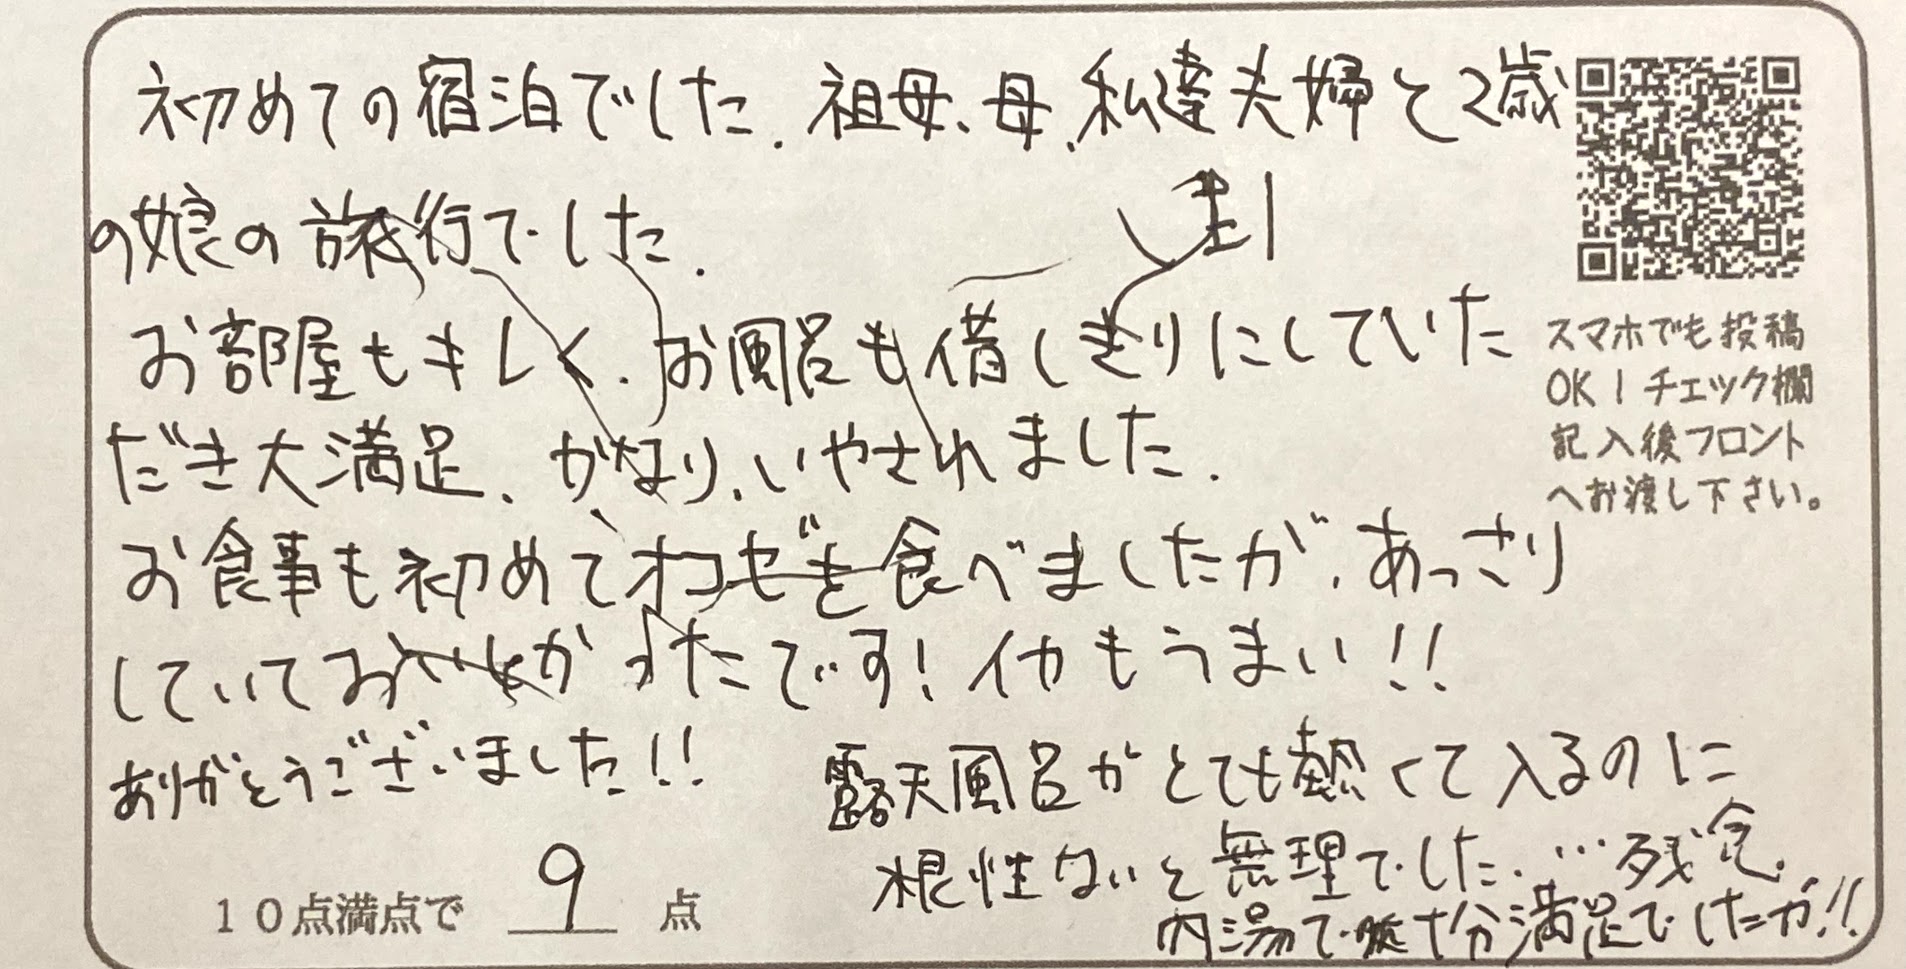 初めての宿泊でした。祖母、母、私達夫婦と2歳
の娘の旅行でした。
お部屋もキレく、お風呂も借しきりにしていた
だき大満足、かなり、いやされました。
お食事も初めてオコゼを食べましたが、あっさり
していておいしかったです!イカもうまい!!
ありがとうございました!!
露天風呂がとても熱くて入るのに
根性ないと無理でした。…残念。
内湯で十分満足でしたが!!
10点満点で 9 点
スマホでも投稿
OK!チェック欄
記入後フロント
へお渡し下さい。